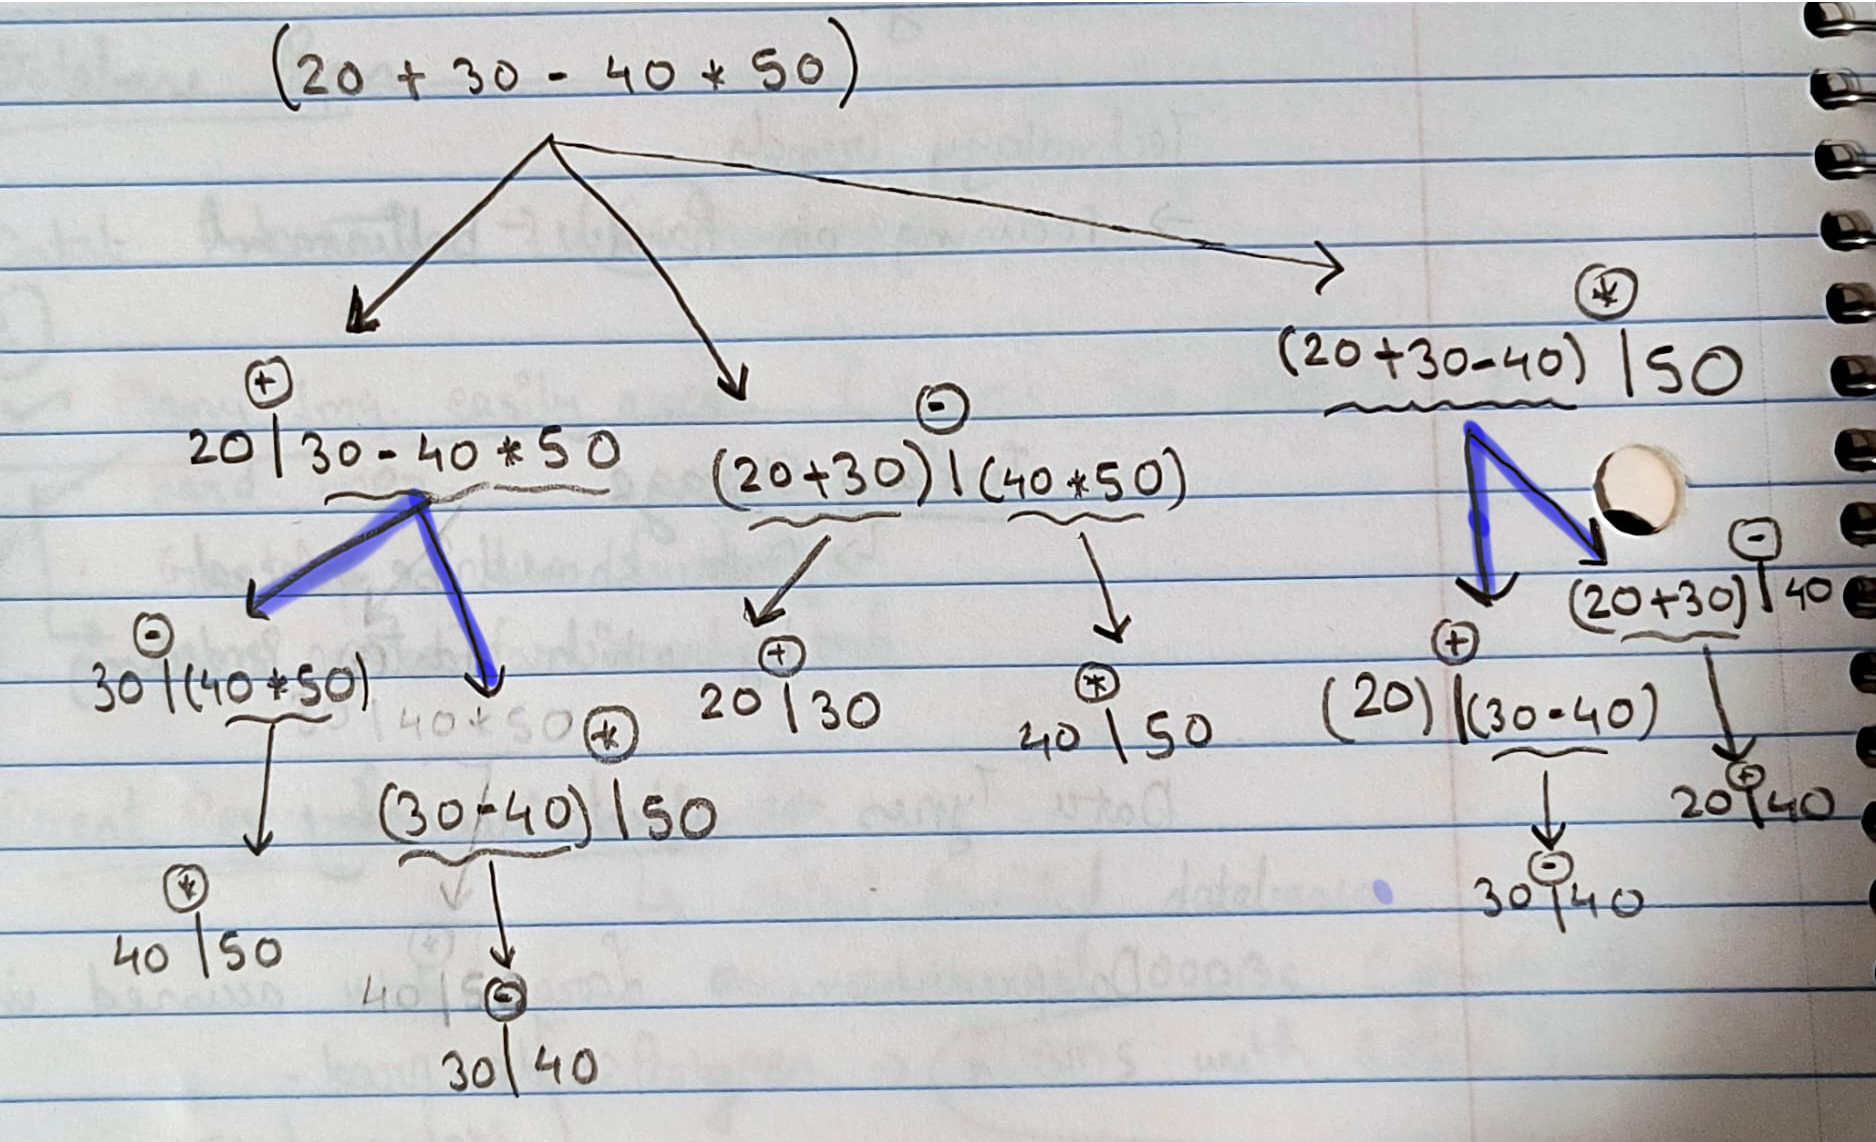 (20 + 30 - 40 * 50)
(*)
(20+30-40) | 50
(+)
20 | 30 - 40 * 50
(-)
(20+30) | (40*50)
(-)
(20+30) | 40
(-)
30 | (40*50)
(+)
20 | 30
(*)
40 | 50
(+)
(20) | (30-40)
(*)
(30-40) | 50
(+)
20 | 40
(-)
30 | 40
(*)
40 | 50
(-)
30 | 40